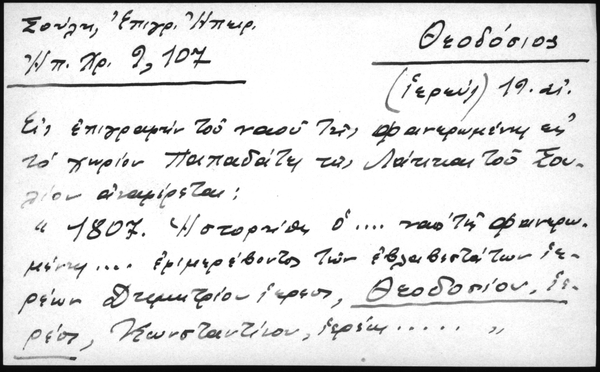 Σούλη, Ἐπιγρ. Ἠπειρ.
Ἠπ. Χρ. 9, 107
Θεοδόσιος
(ἱερεύς) 19. αἰ.
Εἰς ἐπιγραφήν τοῦ ναοῦ τῆς Φανερωμένης εἰς
τό χωρίον Παπαδάτη τῆς Λάκκας τοῦ Σου-
λίου ἀναφέρεται:
" 1807. Ἡστορηθη ὁ .... ναὸ τῆς Φανερω-
μένης .... ἐπιμερέβοντος των ἐβλαβεστάτων ἱε-
ρέων Δημητρίου ἱερεος, Θεοδοσίου, ἱε-
ρέος, Κωνσταντίνου, ἱερέως ..... "